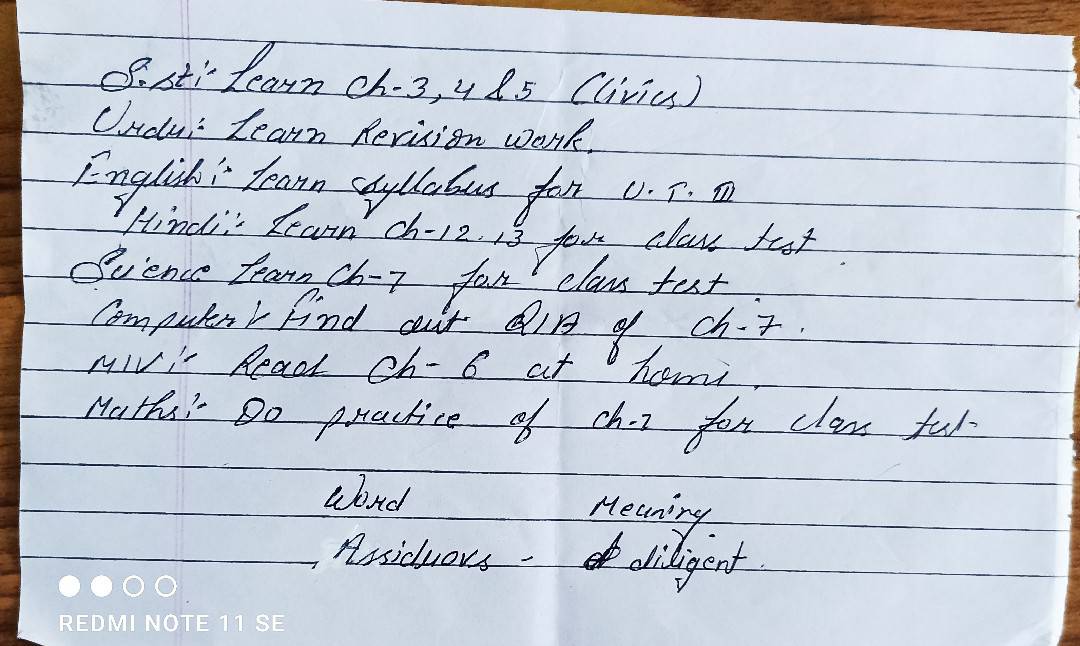 S.st:- Learn Ch-3, 4 & 5 (Civics)
Urdu:- Learn Revision work.
English:- Learn syllabus for U. T. III
Hindi:- Learn Ch-12. 13 for class test
Science Learn Ch-7 for class test.
Computer:- Find out Q/A of ch-7.
MIV:- Read Ch-6 at home.
Maths:- Do practice of ch-2 for class test
Word Meaning
Assiduous - diligent.
REDMI NOTE 11 SE